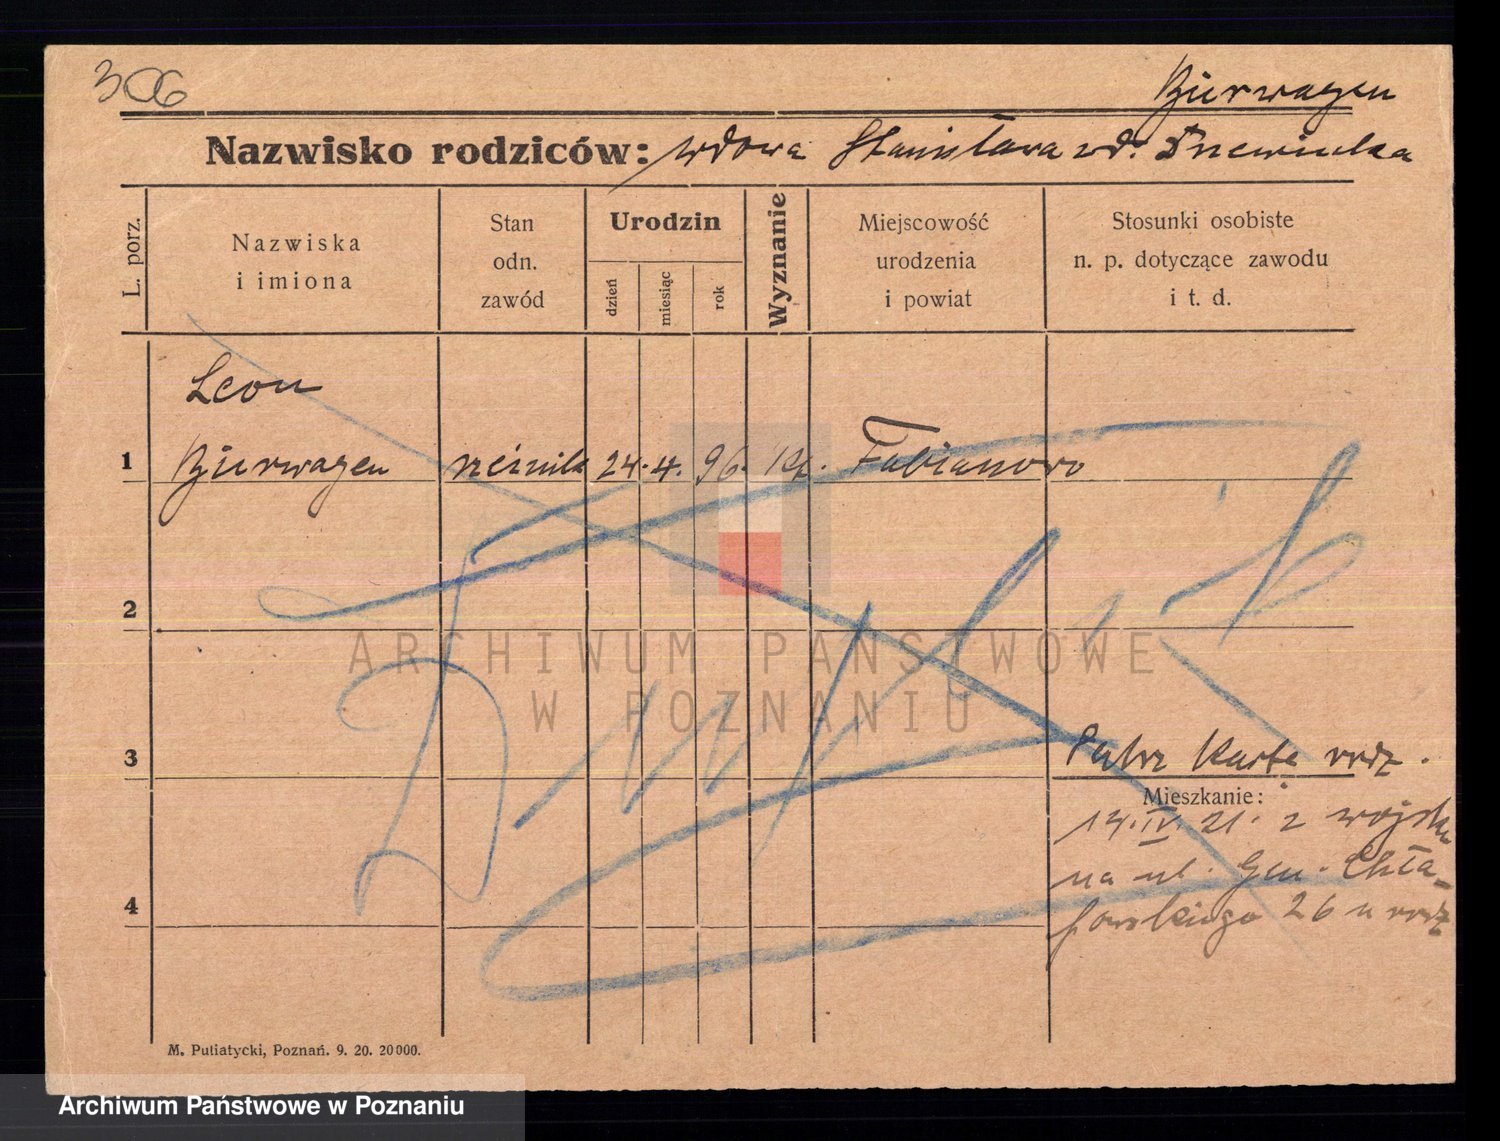 306
Bierwagen
Nazwisko rodziców: wdowa Stanisława zd.
L. porz.
Nazwiska i imiona
Stan odn. zawód
Urodzin
dzień
miesiąc
rok
Wyznanie
Miejscowość urodzenia i powiat
Stosunki osobiste n. p. dotyczące zawodu i t. d.
Leon
1 Bierwagen rzeźnik 24. 4. 96. kt. Fabianowo
2
ARCHIWUM PAŃSTWOWE
W POZNANIU
3 Patrz Kartę rodz.
Mieszkanie:
14. IV. 21. z wojska
na ul. Gen. Chła-
powskiego 26 u rodz
4
M. Putiatycki, Poznań. 9. 20. 20000.
Archiwum Państwowe w Poznaniu